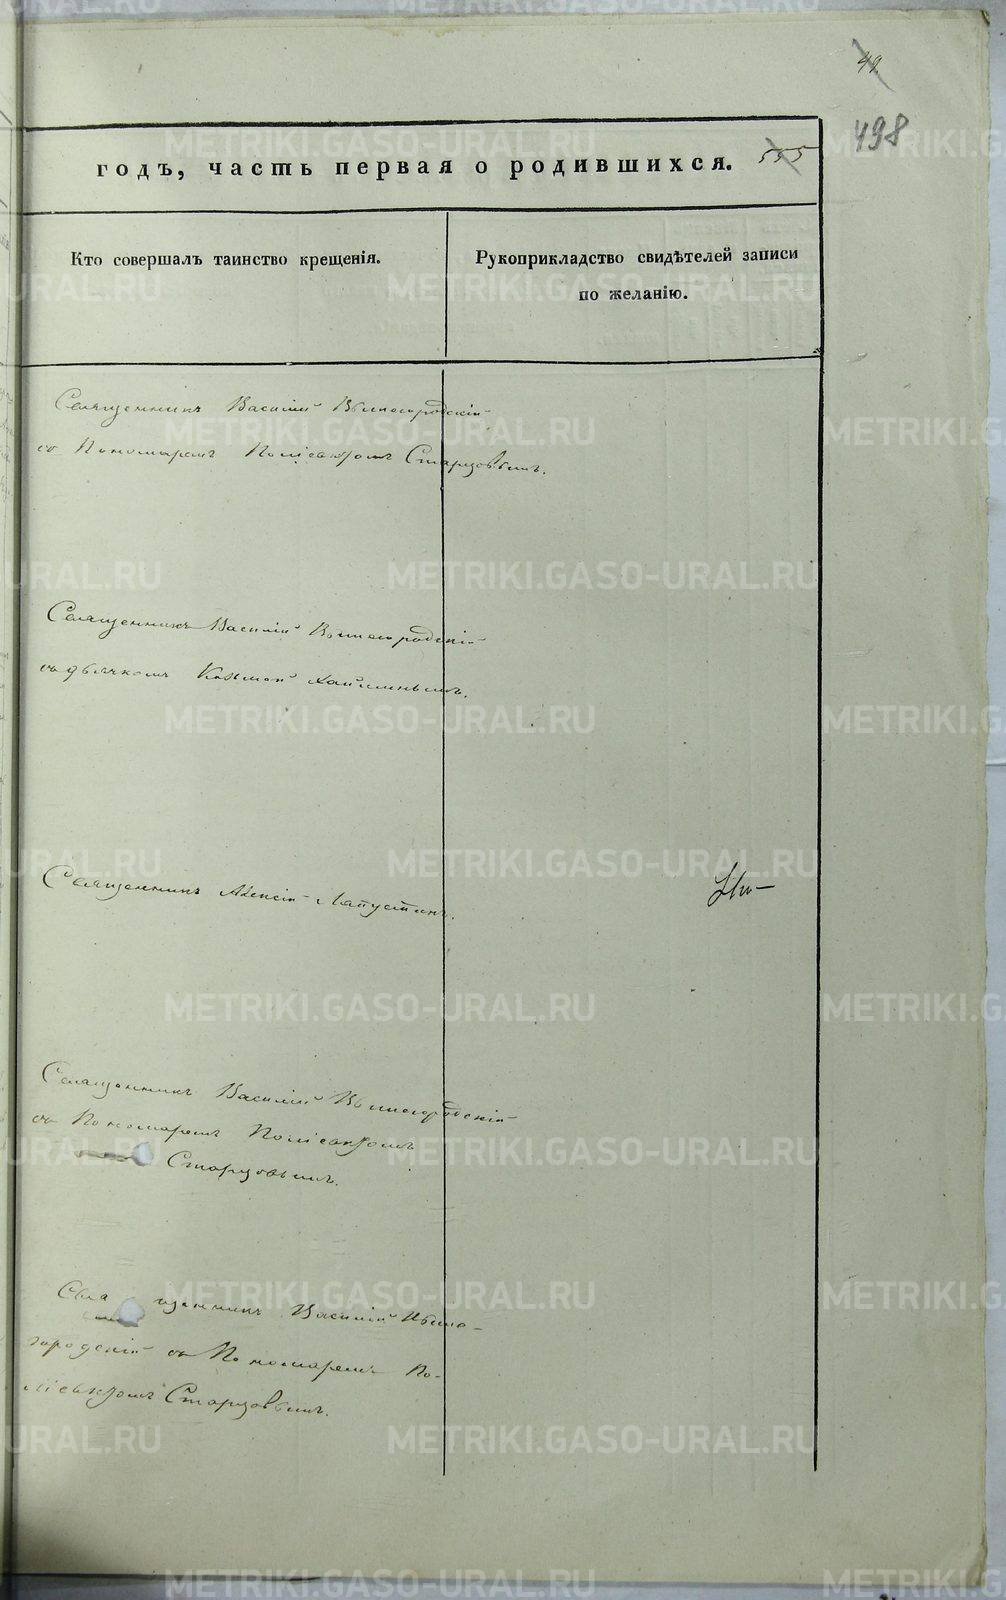 42
498
годъ, часть первая о родившихся. 555
Кто совершалъ таинство крещенія.
Рукоприкладство свидѣтелей записи
по желанію.
Священникъ Василій Вышегородскій
съ Пономаремъ Поліевктомъ Старцовымъ.
Священникъ Василій Вышегородскій
съ дьячкомъ Козьмой
Священникъ Алексій Лапустинъ.
Священникъ Василій Вышегородскій
съ Пономаремъ Поліевктомъ
Старцовымъ.
Священникъ Василій Выше-
городскій съ Пономаремъ По-
ліевктомъ Старцовымъ.
METRIKI.GASO-URAL.RU